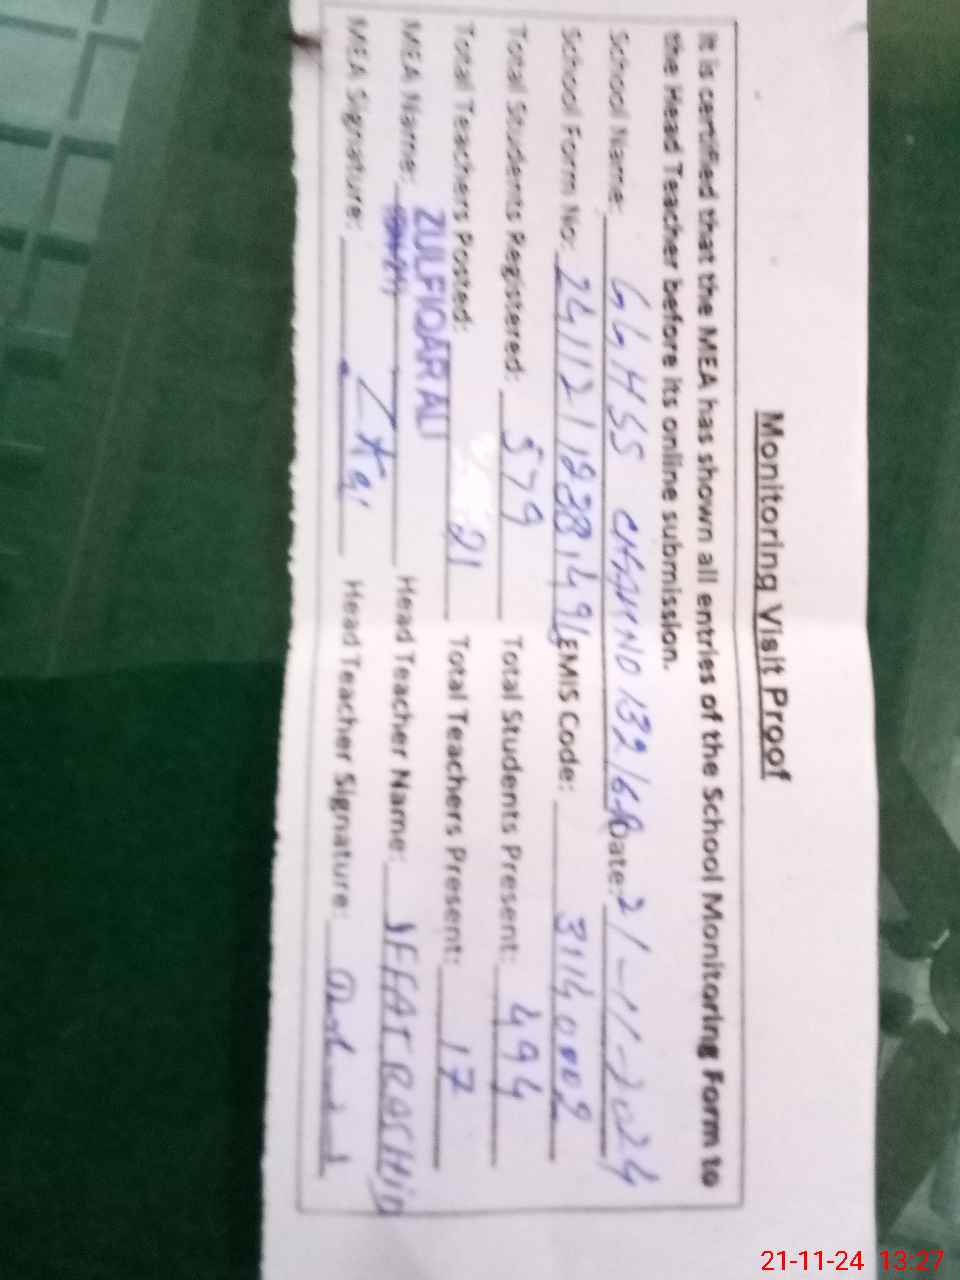 Monitoring Visit Proof
It is certified that the MEA has shown all entries of the School Monitoring Form to
the Head Teacher before its online submission.
School Name: GGHSS CHAK NO 132/6R Date: 21-11-2024
School Form No: EMIS Code: 31140002
Total Students Registered: 579 Total Students Present: 494
Total Teachers Posted: 21 Total Teachers Present: 17
MEA Name: ZULFIQAR ALI Head Teacher Name: IFFAT RASHID
MEA Signature: Head Teacher Signature:
21-11-24 13:27